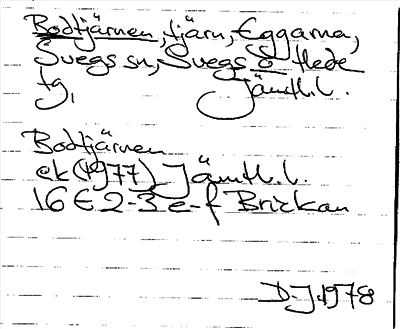 Bodtjärnen, tjärn, Eggarna,
Svegs sn, Svegs ö tlede
tg, Jämtl.l.
Bodtjärnen
ek (1977) Jämtl.l.
16 E 2-3 e-f Brickan
D-J 1978